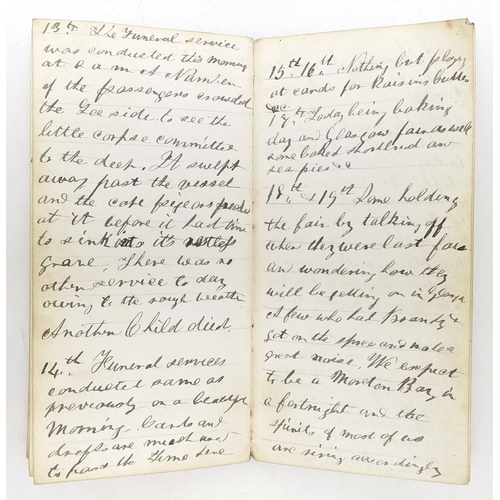 13th The Funeral service
was conducted this morning
at 8 a m A Number
of the passengers crowded
the Lee side to see the
little corpse committed
to the deep. It swept
away past the vessel
and the cape pigeons
at it before it had time
to sink into its restless
grave, There was no
other service to day
owing to the rough weather
Another Child died.
14th Funeral services
conducted same as
previously on a beautiful
Morning. Cards and
drafts are much used
to pass the Time here
15th 16th Nothing but playing
at cards for Raisins
&c
17th Today being baking
day and Glasgow fair as well
some baked shortbred and
sea pies &c
18th & 19th Some holding
the fair by talking off
when they were last fair
and wondering how they
will be getting on in Glasgow
A few who had Brandy
got on the spree and made a
great noise. We expect
to be a Moreton Bay in
a fortnight and the
spirits of most of us
are rising accordingly